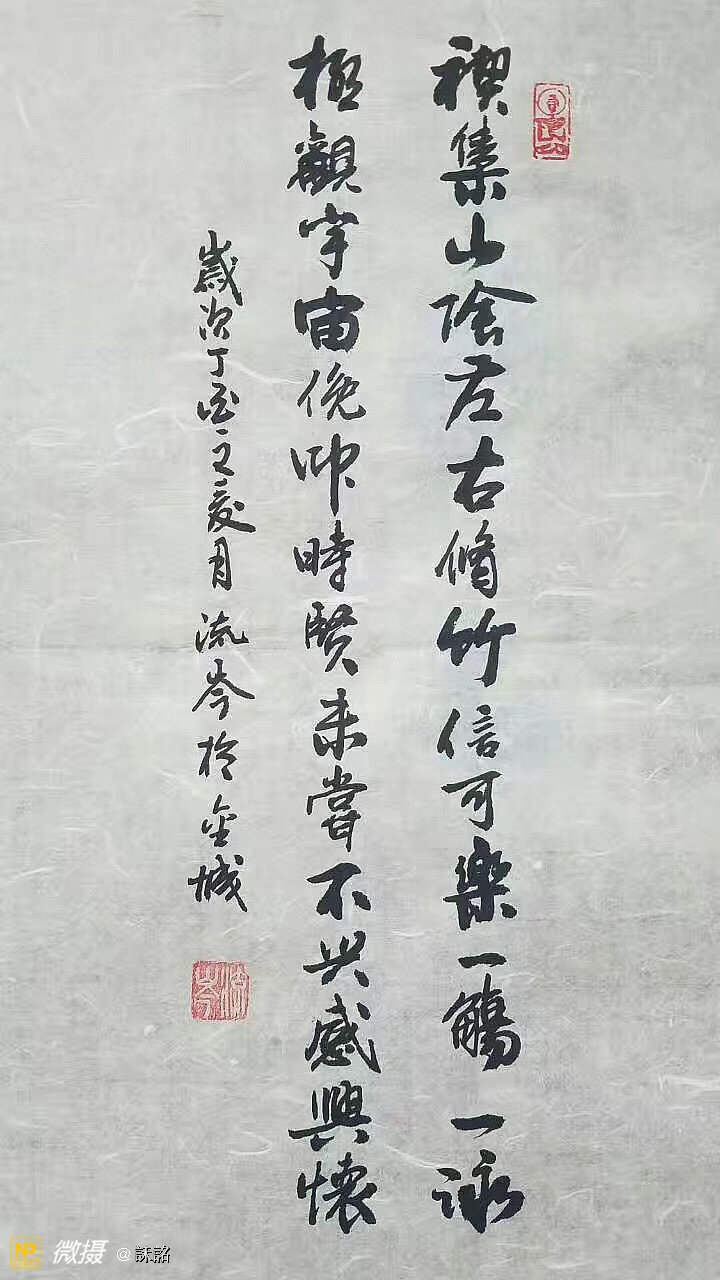 禊集山陰左右脩竹信可樂一觴一詠
極觀宇宙俛仰時賢未嘗不興感興懷
歲次丁酉之夏月流岑於金城
流岑
微摄 @訸詺